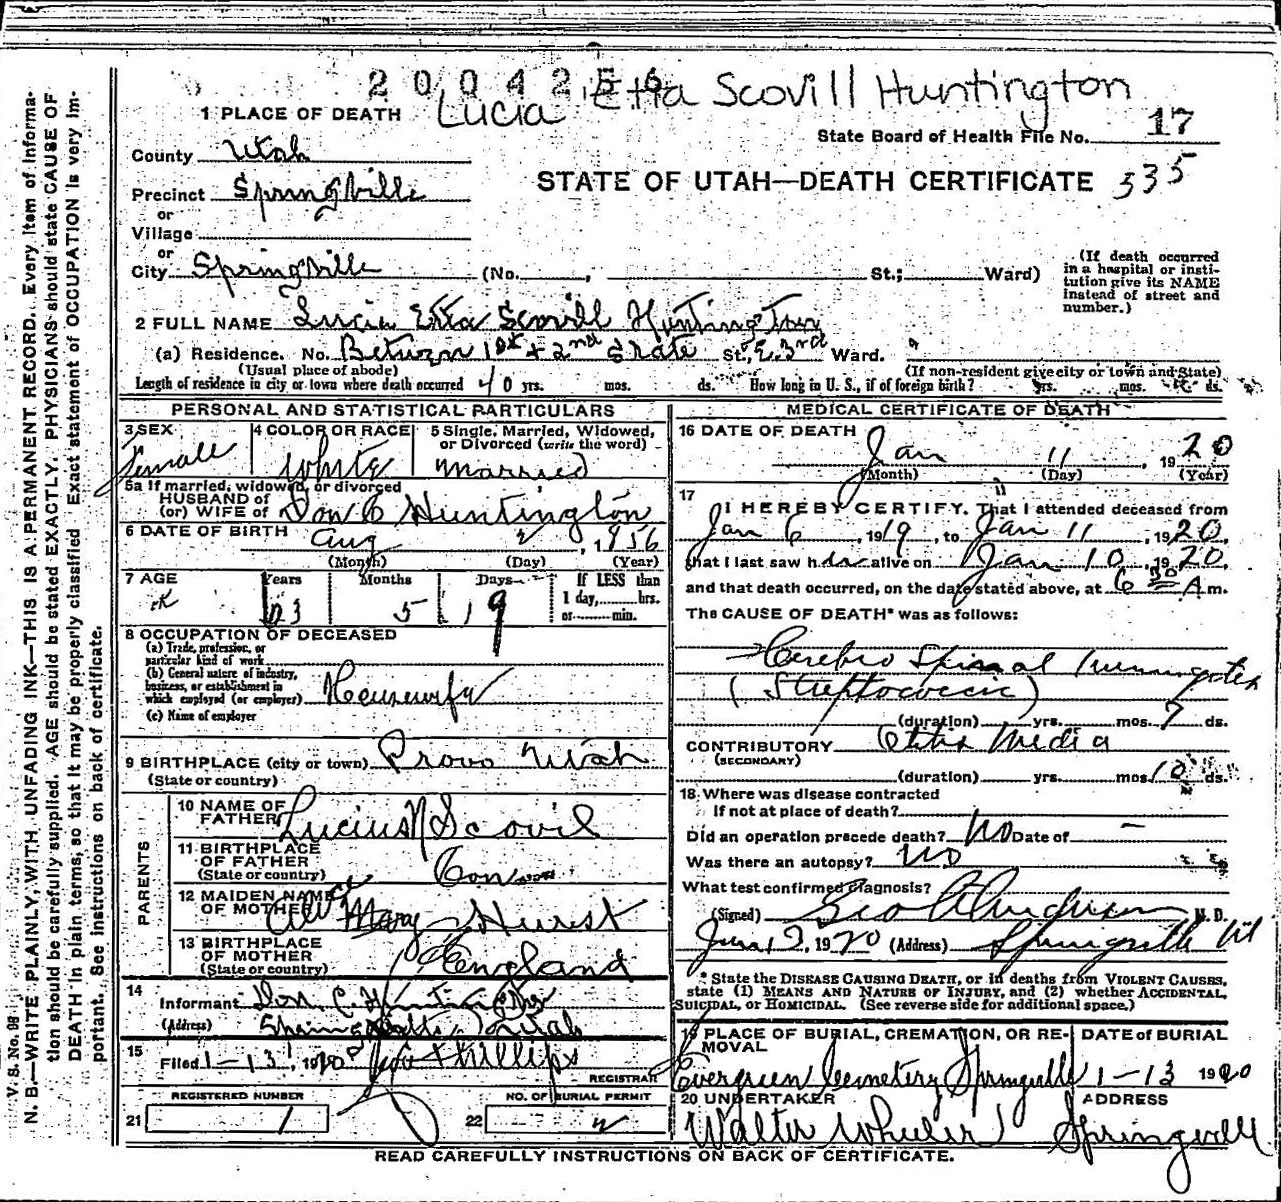 2004256
Lucia Etta Scovill Huntington
1 PLACE OF DEATH
State Board of Health File No. 17
County Utah
STATE OF UTAH—DEATH CERTIFICATE 335
Precinct Springville
or
Village
or
City Springville (No. , St.; Ward)
(If death occurred in a hospital or institution give its NAME instead of street and number.)
2 FULL NAME Lucia Etta Scovill Huntington
(a) Residence. No. Between 1st + 2nd State St., E. 3rd Ward.
(Usual place of abode) (If non-resident give city or town and State)
Length of residence in city or town where death occurred 40 yrs. mos. ds. How long in U. S., if of foreign birth? yrs. mos. ds.
PERSONAL AND STATISTICAL PARTICULARS
3 SEX 4 COLOR OR RACE 5 Single, Married, Widowed, or Divorced (write the word)
Female White Married
5a If married, widowed, or divorced
HUSBAND of
(or) WIFE of Don C Huntington
6 DATE OF BIRTH Aug 2, 1856
(Month) (Day) (Year)
7 AGE Years Months Days If LESS than
63 5 9 1 day, hrs.
or min.
8 OCCUPATION OF DECEASED
(a) Trade, profession, or
particular kind of work
(b) General nature of industry,
business, or establishment in
which employed (or employer) Housewife
(c) Name of employer
9 BIRTHPLACE (city or town) Provo Utah
(State or country)
PARENTS
10 NAME OF FATHER Lucius N Scovil
11 BIRTHPLACE OF FATHER Con
(State or country)
12 MAIDEN NAME OF MOTHER Mary Hurst
13 BIRTHPLACE OF MOTHER England
(State or country)
14
Informant Don C. Huntington
(Address) Springville, Utah
15
Filed 1-13, 1920 Phillips
REGISTRAR
REGISTERED NUMBER NO. OF BURIAL PERMIT
21 1 22 2
MEDICAL CERTIFICATE OF DEATH
16 DATE OF DEATH
Jan 11, 1920
(Month) (Day) (Year)
17
I HEREBY CERTIFY, That I attended deceased from
Jan 6, 1919, to Jan 11, 1920,
that I last saw her alive on Jan 10, 1920
and that death occurred, on the date stated above, at 6 30 A m.
The CAUSE OF DEATH* was as follows:
Cerebro Spinal
(Streptococcic)
(duration) yrs. mos. 7 ds.
CONTRIBUTORY Otitis Media
(SECONDARY)
(duration) yrs. mos. 10 ds.
18 Where was disease contracted
If not at place of death?
Did an operation precede death? No Date of —
Was there an autopsy? No
What test confirmed diagnosis?
(Signed) Geo Anderson M. D.
Jan 12, 1920 (Address) Springville Ut
* State the DISEASE CAUSING DEATH, or in deaths from VIOLENT CAUSES,
state (1) MEANS AND NATURE OF INJURY, and (2) whether ACCIDENTAL,
SUICIDAL, or HOMICIDAL. (See reverse side for additional space.)
19 PLACE OF BURIAL, CREMATION, OR REMOVAL DATE OF BURIAL
Evergreen Cemetery Springville 1-13 1920
20 UNDERTAKER ADDRESS
Walter Wheeler Springville
READ CAREFULLY INSTRUCTIONS ON BACK OF CERTIFICATE.
V. S. No. 98
N. B.—WRITE PLAINLY, WITH UNFADING INK—THIS IS A PERMANENT RECORD. Every item of informa-
tion should be carefully supplied. AGE should be stated EXACTLY. PHYSICIANS should state CAUSE OF
DEATH in plain terms, so that it may be properly classified. Exact statement of OCCUPATION is very im-
portant. See instructions on back of certificate.